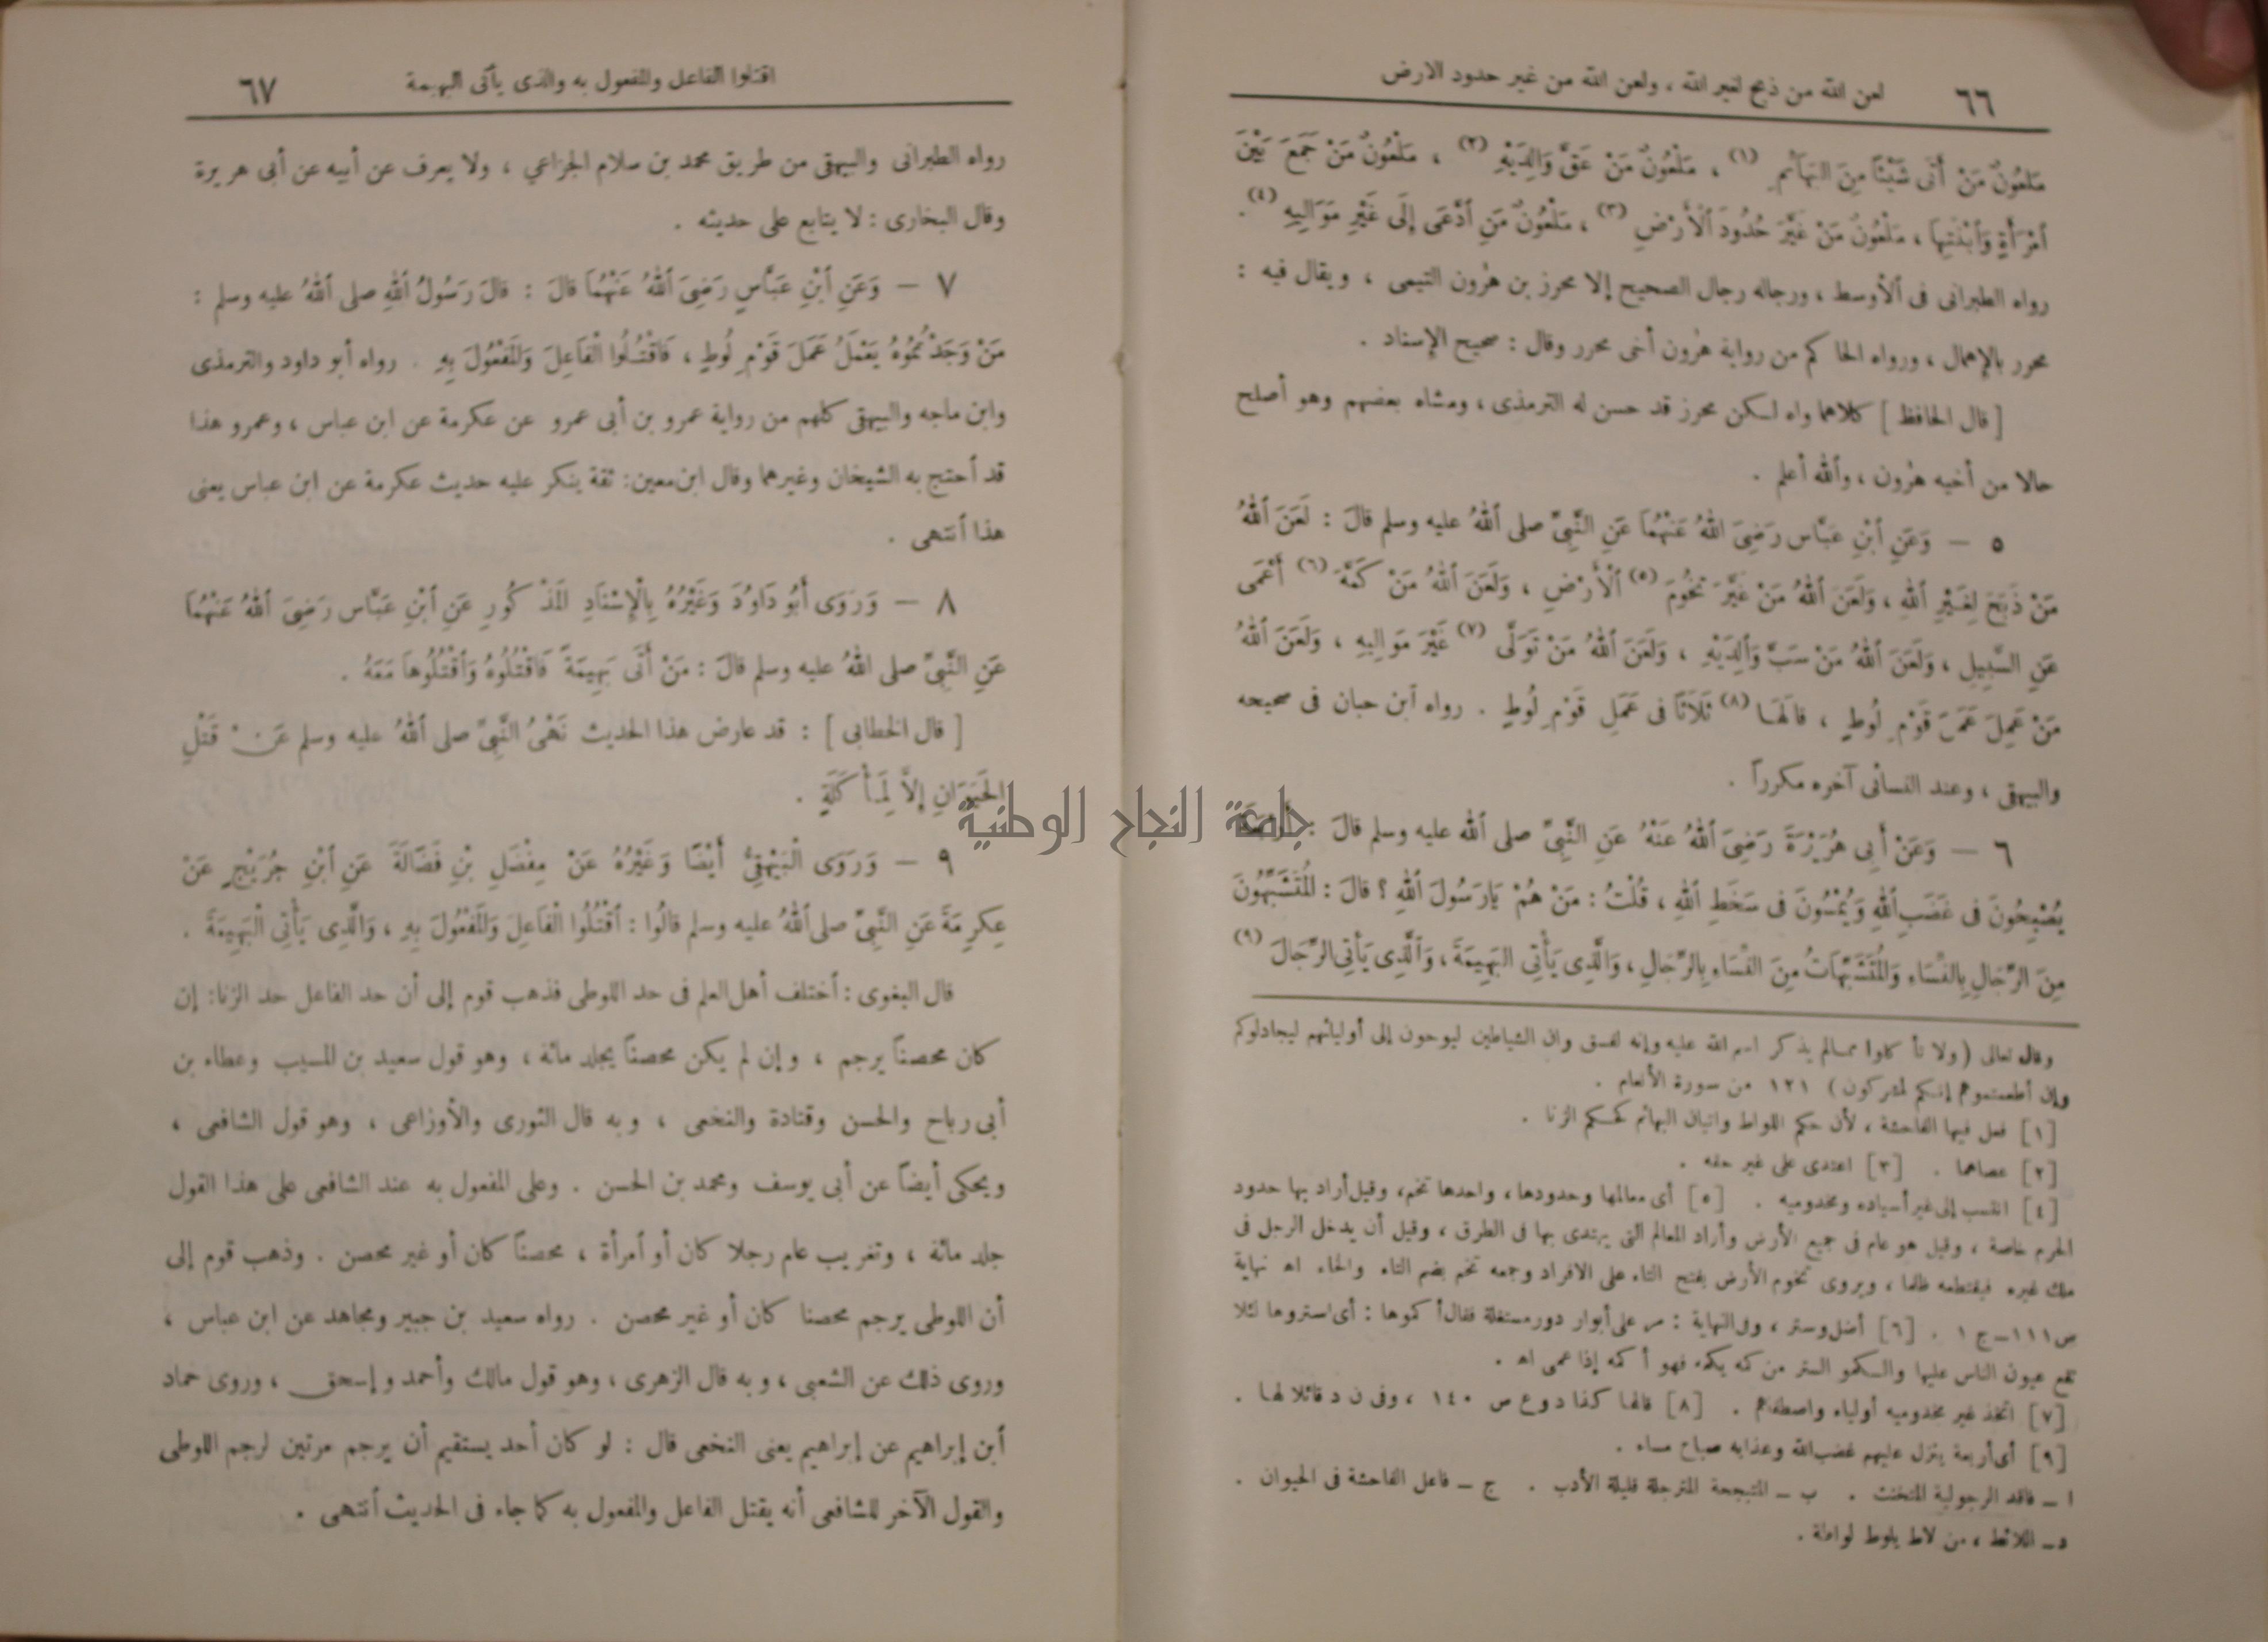 ٦٦ لعن الله من ذبح لغير الله ، ولعن الله من غير حدود الارض
مَلْعُونٌ مَنْ أَتَى شَيْئًا مِنَ الْبَهَائِمِ (١) ، مَلْعُونٌ مَنْ عَقَّ وَالِدَيْهِ (٢) ، مَلْعُونٌ مَنْ جَمَعَ بَيْنَ
أمْرَأَةٍ وَابْنَتِهَا ، مَلْعُونٌ مَنْ غَيَّرَ حُدُودَ الْأَرْضِ (٣) ، مَلْعُونٌ مَنِ ادَّعَى إِلَى غَيْرِ مَوَالِيهِ (٤) .
رواه الطبرانى فى الأوسط ، ورجاله رجال الصحيح إلا محرز بن هٰرون التيمى ، ويقال فيه :
محرر بالإهمال ، ورواه الحاكم من رواية هٰرون أخى محرر وقال : صحيح الإسناد .
[ قال الحافظ ] كلاهما واه لكن محرز قد حسن له الترمذى ، ومشاه بعضهم وهو أصلح
حالا من أخيه هٰرون ، والله أعلم .
٥ — وَعَنِ ابْنِ عَبَّاس رَضِىَ اللهُ عَنْهُمَا عَنِ النَّبِىِّ صلى اللهُ عليه وسلم قالَ : لَعَنَ اللهُ
مَنْ ذَبَحَ لِغَيْرِ اللهِ ، وَلَعَنَ اللهُ مَنْ غَيَّرَ تُخُومَ (٥) الْأَرْضِ ، وَلَعَنَ اللهُ مَنْ كَمَّهَ (٦) أَعْمَى
عَنِ السَّبِيلِ ، وَلَعَنَ اللهُ مَنْ سَبَّ وَالِدَيْهِ ، وَلَعَنَ اللهُ مَنْ تَوَلَّى (٧) غَيْرَ مَوَالِيهِ ، وَلَعَنَ اللهُ
مَنْ عَمِلَ عَمَلَ قَوْمِ لُوطٍ ، قالَهَا (٨) ثَلَاثًا فى عَمَلِ قَوْمِ لُوطٍ . رواه ابن حبان فى صحيحه
والبيهقى ، وعند النسائى آخره مكرراً .
٦ — وَعَنْ أَبِى هُرَيْرَةَ رَضِىَ اللهُ عَنْهُ عَنِ النَّبِىِّ صلى الله عليه وسلم قالَ : أَرْبَعَةٌ
يُصْبِحُونَ فى غَضَبِ اللهِ وَيُمْسُونَ فى سَخَطِ اللهِ ، قُلْتُ : مَنْ هُمْ يَارَسُولَ اللهِ ؟ قالَ : الْمُتَشَبِّهُونَ
مِنَ الرِّجَالِ بِالنِّسَاءِ وَالْمُتَشَبِّهَاتُ مِنَ النِّسَاءِ بِالرِّجَالِ ، وَالَّذِى يَأْتِى البَهِيمَةَ ، وَالَّذِى يَأْتِى الرِّجَالَ (٩)
وقال تعالى ( ولا تأكلوا ممالم يذكر اسم الله عليه وإنه لفسق وان الشياطين ليوحون إلى أوليائهم ليجادلوكم
وإن أطعمتموهم إنكم لمشركون ) ١٢١ من سورة الأنعام .
[١] فعل فيها الفاحشة ، لأن حكم اللواط واتيان البهائم كحكم الزنا .
[٢] عصاهما . [٣] اعتدى على غير حقه .
[٤] انتسب إلى غير أسياده ومخدوميه . [٥] أى معالمها وحدودها ، واحدها تخم ، وقيل أراد بها حدود
الحرم خاصة ، وقيل هو عام فى جميع الأرض وأراد المعالم التى يهتدى بها فى الطرق ، وقيل أن يدخل الرجل فى
ملك غيره فيقتطعه ظلما ، ويروى تخوم الأرض بفتح التاء على الافراد وجمعه تخم بضم التاء والخاء اهـ نهاية
ص ١١١ ـ ج ١ . [٦] أضل وستر ، وفى النهاية : مر على أبواب دور مستفلة فقال أكموها : أى استروها لئلا
تقع عيون الناس عليها والكمو الستر من كمه يكمه فهو أكمه إذا عمى اهـ .
[٧] اتخذ غير مخدوميه أولياء واصطفاهم . [٨] قالها كذا د و ع ص ١٤٠ ، وفى ن د قائلا لها .
[٩] أى أربعة ينزل عليهم غضب الله وعذابه صباح مساء .
ا ـ فاقد الرجولية المتخنث . ب ـ المتبجحة المترجلة قليلة الأدب . ج ـ فاعل الفاحشة فى الحيوان .
د ـ اللائط ، من لاط يلوط لواطة .
اقتلوا الفاعل والمفعول به والذى يأتى البهيمة ٦٧
رواه الطبرانى والبيهقى من طريق محمد بن سلام الخزاعي ، ولا يعرف عن أبيه عن أبى هريرة
وقال البخارى : لا يتابع على حديثه .
٧ — وَعَنِ ابْنِ عَبَّاسٍ رَضِىَ اللهُ عَنْهُمَا قالَ : قالَ رَسُولُ اللهِ صلى اللهُ عليه وسلم :
مَنْ وَجَدْتُمُوهُ يَعْمَلُ عَمَلَ قَوْمِ لُوطٍ ، فَاقْتُلُوا الْفَاعِلَ وَالمَفْعُولَ بِهِ . رواه أبو داود والترمذى
وابن ماجه والبيهقى كلهم من رواية عمرو بن أبى عمرو عن عكرمة عن ابن عباس ، وعمرو هذا
قد أحتج به الشيخان وغيرهما وقال ابن معين : ثقة ينكر عليه حديث عكرمة عن ابن عباس يعنى
هذا أنتهى .
٨ — وَرَوَى أَبُو دَاوُدَ وَغَيْرُهُ بِالْإِسْنَادِ المَذْكُورِ عَنِ ابْنِ عَبَّاس رَضِىَ اللهُ عَنْهُمَا
عَنِ النَّبِىِّ صلى اللهُ عليه وسلم قالَ : مَنْ أَتَى بَهِيمَةً فَاقْتُلُوهُ وَاقْتُلُوهَا مَعَهُ .
[ قال الخطابى ] : قد عارض هذا الحديث نَهْىُ النَّبِىِّ صلى اللهُ عليه وسلم عَنْ قَتْلِ
الحَيَوَانِ إلاَّ لِمَأْكَلَةٍ .
جامعة النجاح الوطنية
٩ — وَرَوَى الْبَيْهَقِىُّ أَيْضًا وَغَيْرُهُ عَنْ مِفْضَلِ بْنِ فَضَالَةَ عَنِ ابْنِ جُرَيْجٍ عَنْ
عِكرِمَةَ عَنِ النَّبِىِّ صلى اللهُ عليه وسلم قالُوا : اقْتُلُوا الْفَاعِلَ وَالمَفْعُولَ بِهِ ، وَالَّذِى يَأْتِى الْبَهِيمَةَ .
قال البغوى : أختلف أهل العلم فى حد اللوطى فذهب قوم إلى أن حد الفاعل حد الزنا : إن
كان محصناً يرجم ، وإن لم يكن محصناً يجلد مائة ، وهو قول سعيد بن المسيب وعطاء بن
أبى رباح والحسن وقتادة والنخعى ، وبه قال الثورى والأوزاعى ، وهو قول الشافعى ،
ويحكى أيضاً عن أبى يوسف ومحمد بن الحسن . وعلى المفعول به عند الشافعى على هذا القول
جلد مائة ، وتغريب عام رجلا كان أو أمرأة ، محصناً كان أو غير محصن . وذهب قوم إلى
أن اللوطى يرجم محصنا كان أو غير محصن . رواه سعيد بن جبير ومجاهد عن ابن عباس ،
وروى ذلك عن الشعبى ، وبه قال الزهرى ، وهو قول مالك وأحمد وإسحق ، وروى حماد
أبن إبراهيم عن إبراهيم يعنى النخعى قال : لو كان أحد يستقيم أن يرجم مرتين لرجم اللوطى
والقول الآخر للشافعى أنه يقتل الفاعل والمفعول به كما جاء فى الحديث أنتهى .